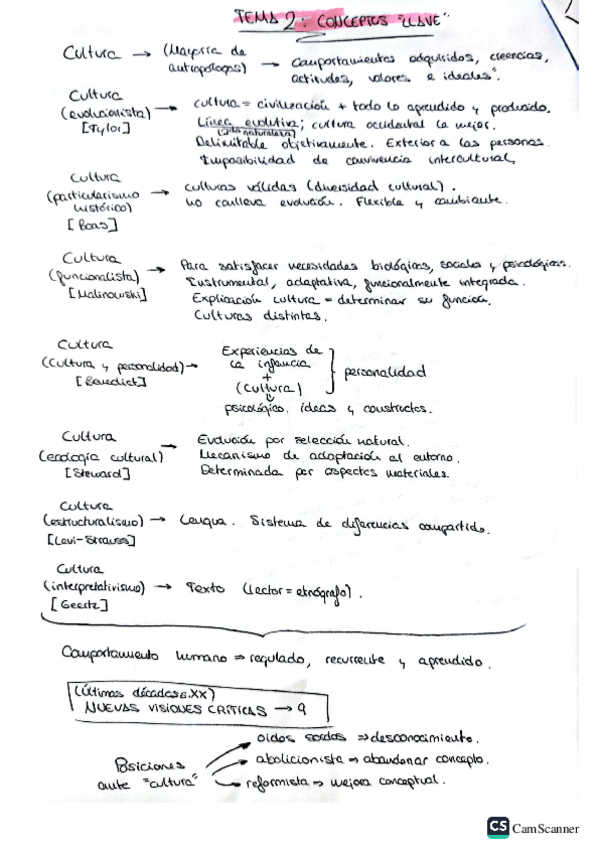 TEMA 2: CONCEPTOS "LLAVE"
Cultura → (Mayoría de antropólogos) → comportamientos adquiridos, creencias, actitudes, valores e ideales".
Cultura (evolucionista) [Tylor] → cultura = civilización + todo lo aprendido y producido.
Línea evolutiva; cultura occidental la mejor.
Delimitable objetivamente. Exterior a las personas.
Imposibilidad de convivencia intercultural,
Cultura (particularismo histórico) [Boas] → culturas válidas (diversidad cultural).
no conlleva evolución. Flexible y cambiante.
Cultura (funcionalista) [Malinowski] → Para satisfacer necesidades biológicas, sociales y psicológicas.
Instrumental, adaptativa, funcionalmente integrada.
Explicación cultura = determinar su función.
Culturas distintas.
Cultura (Cultura y personalidad) [Benedict] → Experiencias de la infancia + (cultura) } personalidad
psicológico. ideas y constructos.
Cultura (ecología cultural) [Steward] → Evolución por selección natural.
Mecanismo de adaptación al entorno.
Determinada por aspectos materiales.
Cultura (estructuralismo) [Levi-Strauss] → Lengua. Sistema de diferencias compartido.
Cultura (interpretativismo) [Geertz] → Texto (lector = etnógrafo).
Comportamiento humano ⇒ regulado, recurrente y aprendido.
(Últimas décadas s.XX)
NUEVAS VISIONES CRÍTICAS → 9
Posiciones ante "cultura"
oídos sordos ⇒ desconocimiento.
abolicionista → abandonar concepto.
reformista → mejora conceptual.
CS CamScanner